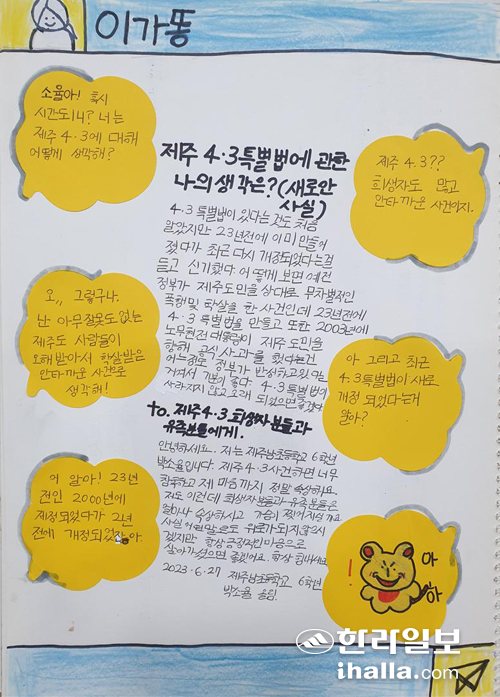 이가똥
소율아! 혹시
시간도니? 너는
제주 4.3에 대해
어떻게 생각해?
제주 4.3??
희생자도 많고
안타까운 사건이지.
오,, 그렇구나.
난 아무잘못도 없는
제주도 사람들이
오해받아서 학살받은
안타까운 사건으로
생각해!
아 그리고 최근
4.3특별법이 새로
개정 되었다는거
알아?
어 알아! 23년
전인 2000년에
제정되었다가 2년
전에 개정되었잖아
아
하
!
제주 4·3특별법에 관한
나의 생각은?(새로안
사실)
4.3 특별법이 있다는 것도 처음
알았지만 23년전에 이미 만들어
졌다가 최근 다시 개정되었다는걸
듣고 신기했다 어떻게 보면 예전
정부가 제주도민을 상대로 무차별적인
폭행및 학살을 한 사건인데 23년전에
4.3 특별법을 만들고 또한 2003년에
노무현전 대통령이 제주 도민을
향해 공식 사과를 했다는건
어느정도 정부가 반성하고있
겨져서 기분이 좋다 4.3특별법이
사라지지 않고 오래 되었으면 좋겠다
to. 제주4·3 희생자분들과
유족분들에게.
안녕하세요. 저는 제주남초등학교 6학년
박소율입니다. 제주 4.3사건하면 너무
참혹하고 제 마음까지 정말 속상해요.
저도 이런데 희생자분들과 유족분들은
얼마나 속상하시고 가슴이 찢어지실까요
사실 어떤말로도 위로가되지않으시
겠지만 항상 긍정적인마음으로
살아가셨으면 좋겠어요. 항상 힘내세요
2023.6.27 제주남초등학교 6학년
박소율 올림.
한라일보
ihalla.com